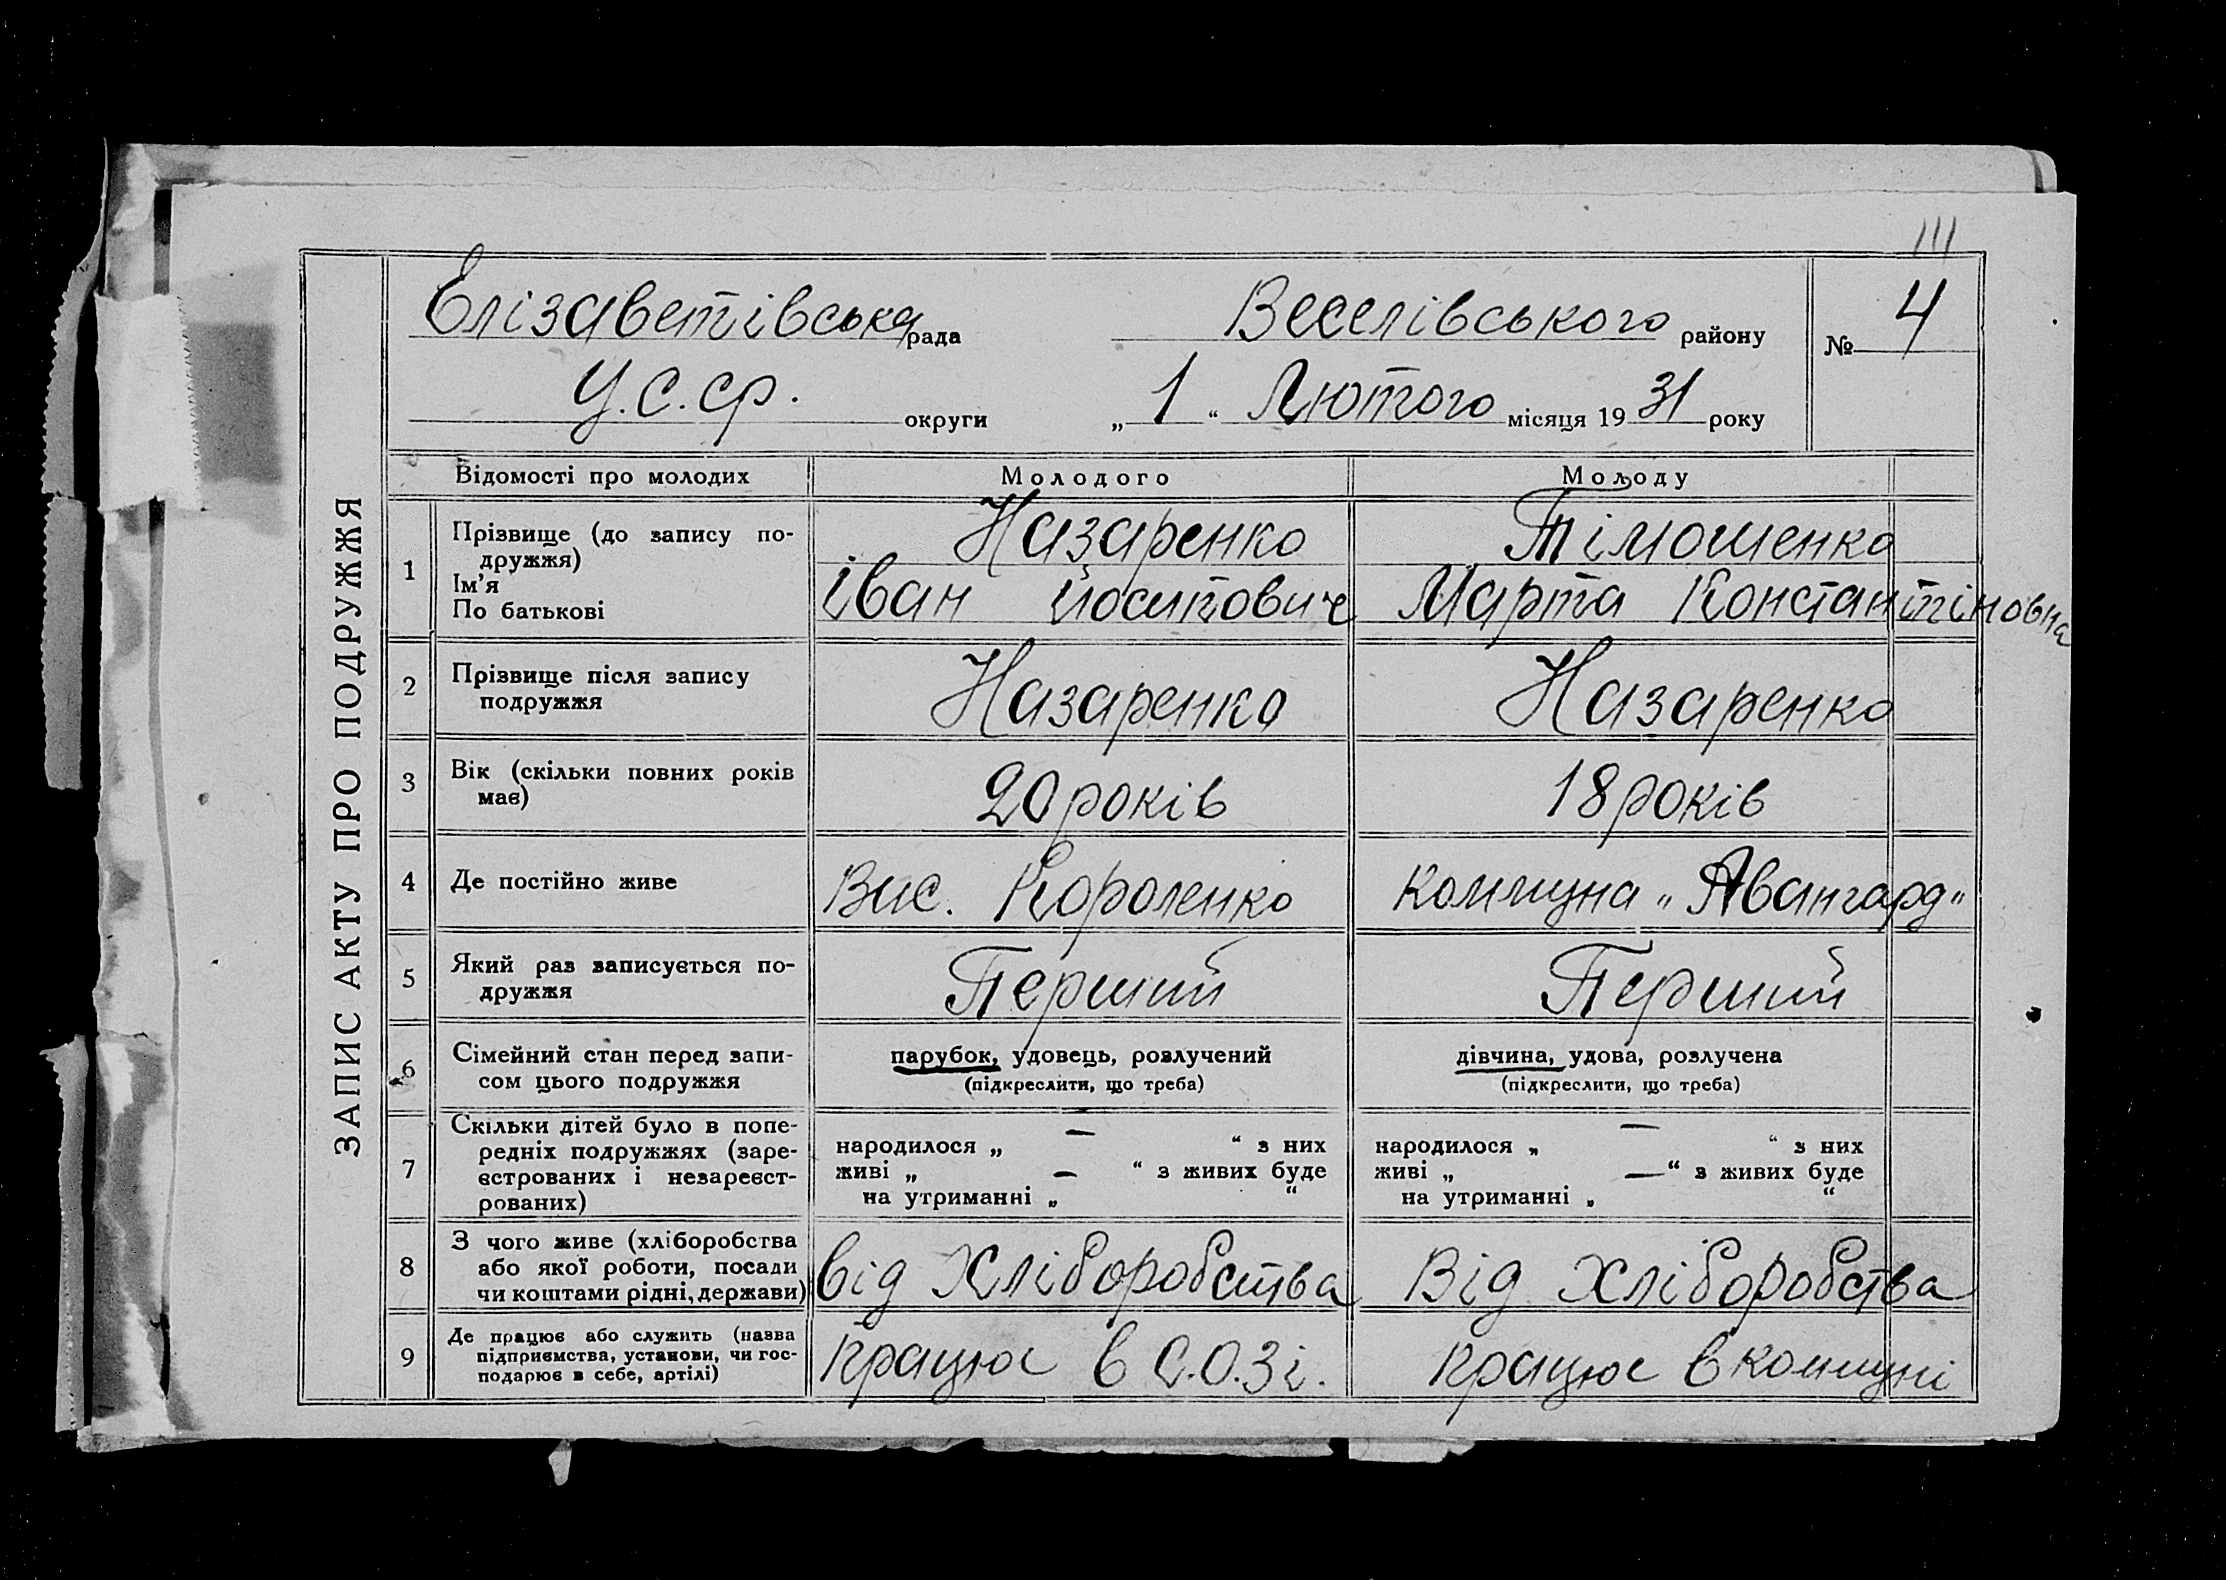 111
Єлізаветівська рада Веселівського району № 4
У.С.С.р. округи „ 1 “ Лютого місяця 19 31 року
ЗАПИС АКТУ ПРО ПОДРУЖЖЯ
Відомості про молодих Молодого Молоду
1 Прізвище (до запису по- Назаренко Тімошенко
дружжя)
Ім’я Іван Йосипович Марта Константіновна
По батькові
2 Прізвище після запису Назаренко Назаренко
подружжя
3 Вік (скільки повних років 20 років 18 років
має)
4 Де постійно живе Вис. Короленко комміуна „Авангард“
5 Який раз записується по- Перший Перший
дружжя
6 Сімейний стан перед запи- парубок, удовець, розлучений дівчина, удова, розлучена
сом цього подружжя (підкреслити, що треба) (підкреслити, що треба)
7 Скільки дітей було в попе-
редніх подружжях (заре- народилося „ — “ з них народилося „ — “ з них
єстрованих і незареєст- живі „ — “ з живих буде живі „ — “ з живих буде
рованих) на утриманні „ “ на утриманні „ “
8 З чого живе (хліборобства
або якої роботи, посади від Хліборобства Від Хліборобства
чи коштами рідні, держави)
9 Де працює або служить (назва
підприємства, установи, чи гос- Працює в С.О.Зі. Працює в коммуні
подарює в себе, артілі)